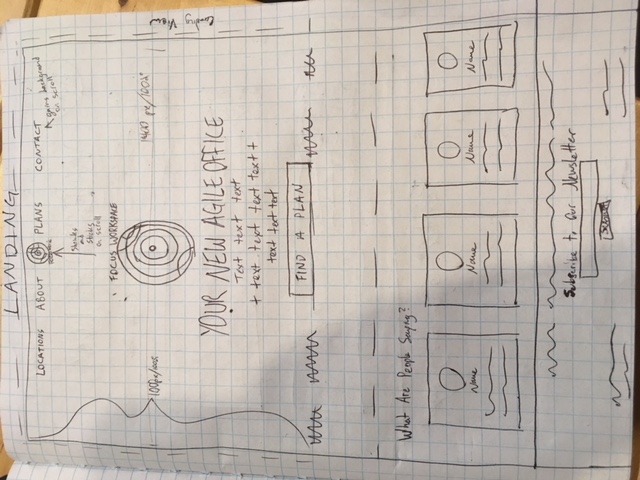 LANDING
LOCATIONS ABOUT PLANS CONTACT
gains background on scroll
Shrinks
and
sticks
on scroll
FOCUS WORKSPACE
Landing View
YOUR NEW AGILE OFFICE
Text text text
+ text text text text +
text text text
FIND A PLAN
What Are People Saying?
Name Name Name Name
Subscribe to Our Newsletter